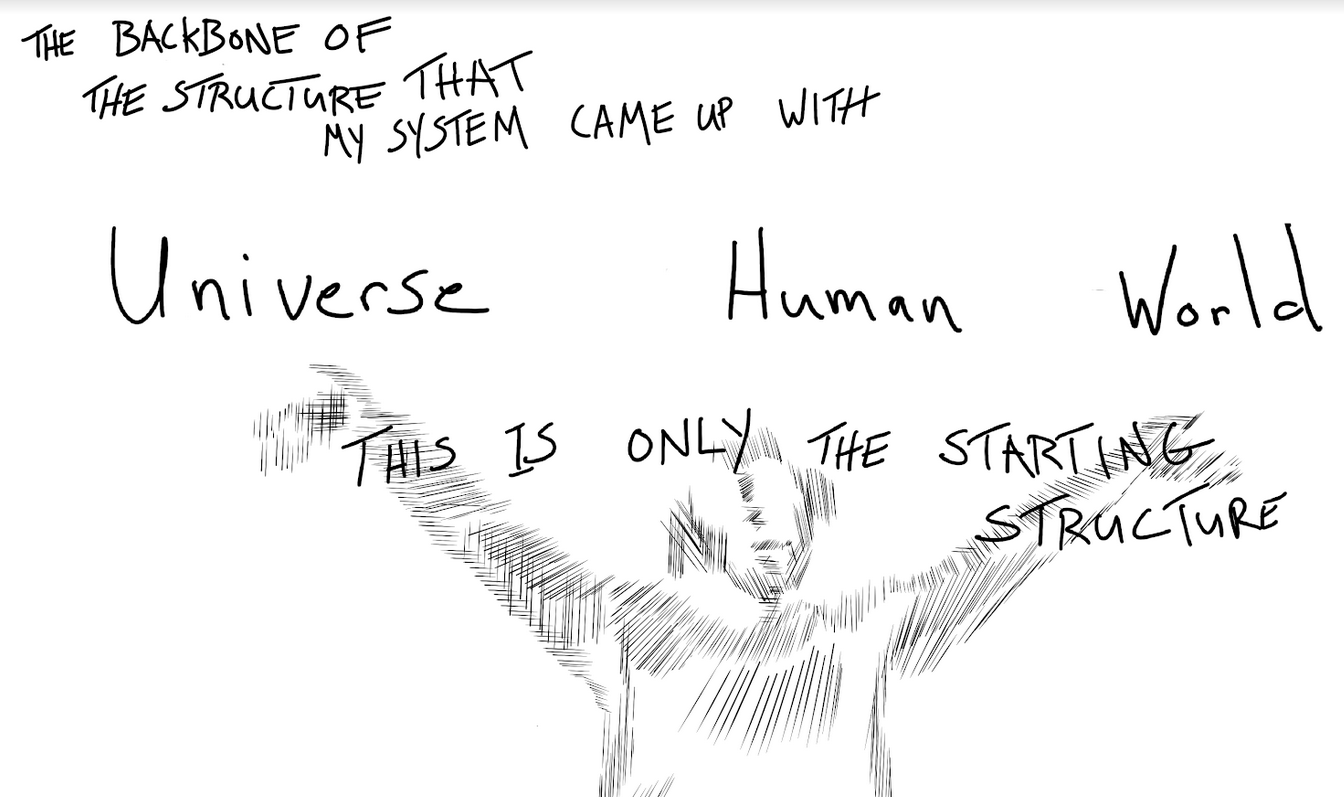 THE BACKBONE OF
THE STRUCTURE THAT
MY SYSTEM CAME UP WITH
Universe Human World
THIS IS ONLY THE STARTING
STRUCTURE